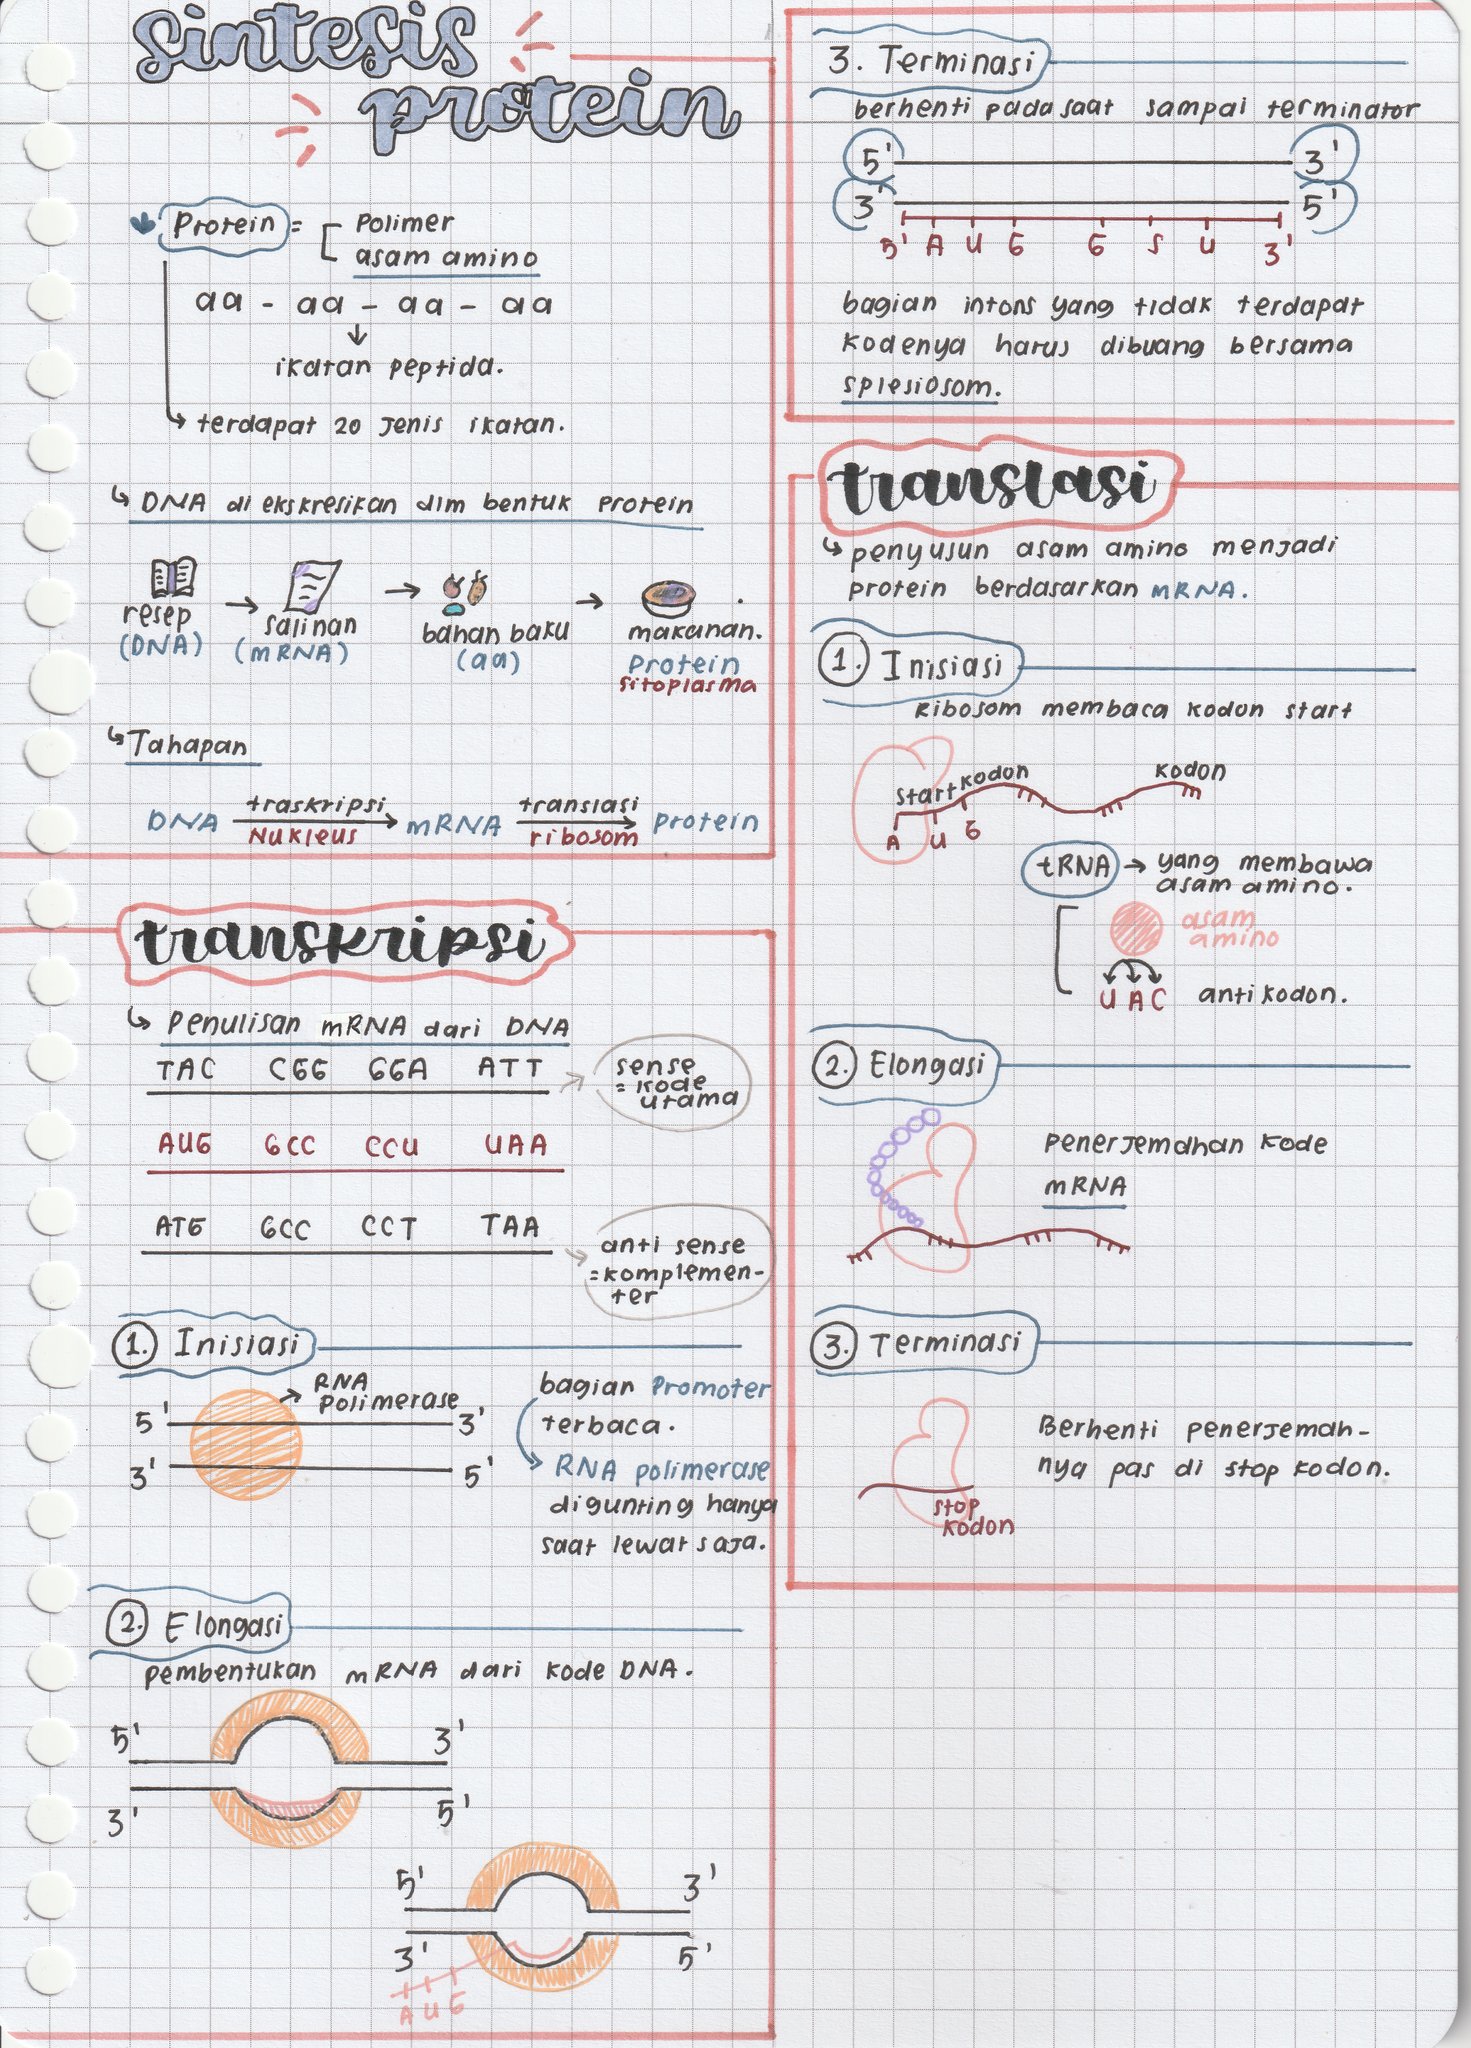 sintesis
protein
Protein = Polimer
asam amino
aa - aa - aa - aa
ikatan peptida.
terdapat 20 Jenis ikatan.
DNA di ekskresikan dlm bentuk Protein
resep
(DNA)
salinan
(mRNA)
bahan baku
(aa)
makanan.
Protein
sitoplasma
Tahapan
DNA traskripsi mRNA translasi Protein
Nukleus ribosom
transkripsi
Penulisan mRNA dari DNA
TAC CGG GGA ATT
sense
= kode
utama
AUG GCC CCU UAA
ATG GCC CCT TAA
anti sense
= komplemen-
ter
1. Inisiasi
RNA
polimerase
5' 3'
3' 5'
bagian Promoter
terbaca.
RNA polimerase
digunting hanya
saat lewat saja.
2. Elongasi
pembentukan mRNA dari kode DNA.
5' 3'
3' 5'
5' 3'
3' 5'
A U G
3. Terminasi
berhenti pada saat sampai terminator
5' 3'
3' 5'
5' A U G G S U 3'
bagian intons yang tidak terdapat
kodenya harus dibuang bersama
splesiosom.
translasi
penyusun asam amino menjadi
protein berdasarkan mRNA.
1. Inisiasi
Ribosom membaca kodon start
start kodon kodon
A U G
tRNA → yang membawa
asam amino.
asam
amino
UAC anti kodon.
2. Elongasi
Penerjemahan kode
mRNA
3. Terminasi
Berhenti penerjemah-
nya pas di stop kodon.
stop
kodon